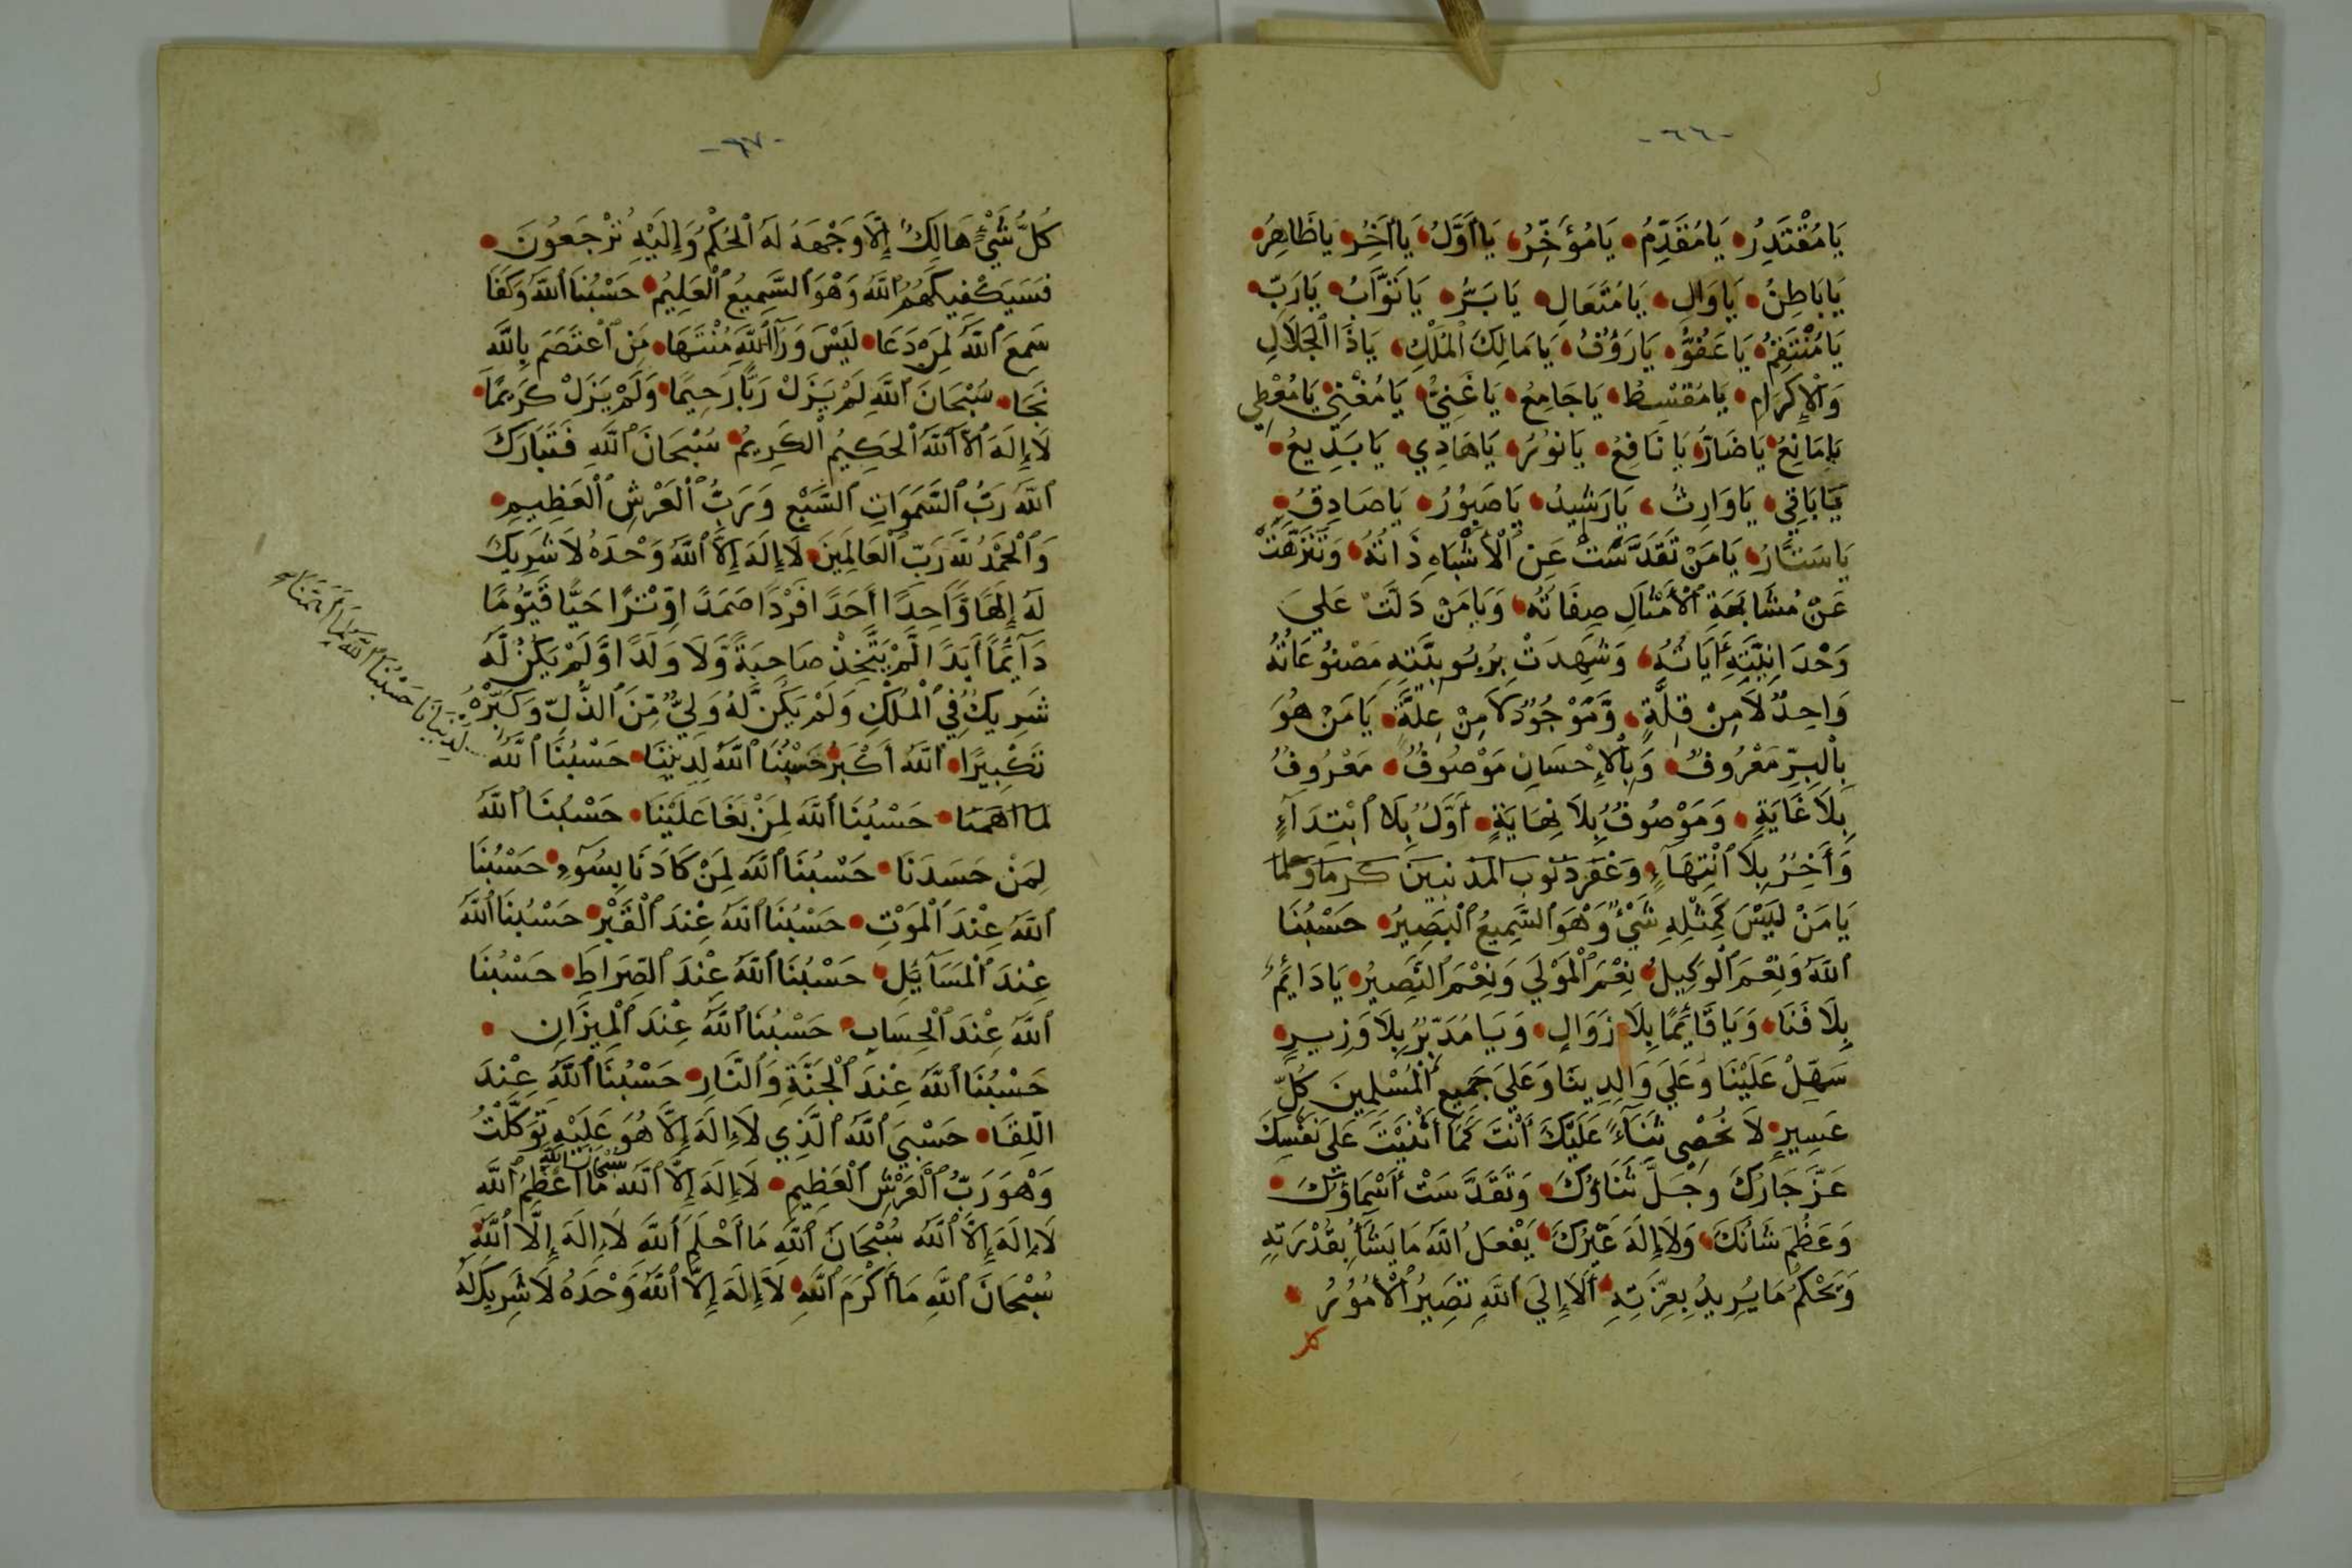 -٦٦-
يَا مُقْتَدِرُ يَا مُقَدِّمُ يَا مُؤَخِّرُ يَا أَوَّلُ يَا أَخِرُ يَا ظَاهِرُ
يَا بَاطِنُ يَا وَالِ يَا مُتَعَالِ يَا بَرُّ يَا تَوَّابُ يَا رَبِّ
يَا مُنْتَقِمُ يَا عَفُوُّ يَا رَؤُفُ يَا مَالِكَ الْمُلْكِ يَا ذَا الْجَلَالِ
وَالْإِكْرَامِ يَا مُقْسِطُ يَا جَامِعُ يَا غَنِيُّ يَا مُغْنِي يَا مُعْطِي
يَا مَانِعُ يَا ضَارُّ يَا نَافِعُ يَا نُورُ يَا هَادِي يَا بَدِيعُ
يَا بَاقِي يَا وَارِثُ يَا رَشِيدُ يَا صَبُورُ يَا صَادِقُ
يَا سَتَّارُ يَا مَنْ تَقَدَّسَتْ عَنِ الْأَشْبَاهِ ذَاتُهُ وَتَنَزَّهَتْ
عَنْ مُشَابَهَةِ الْأَمْثَالِ صِفَاتُهُ وَيَا مَنْ دَلَّتْ عَلَي
وَحْدَانِيَّتِهِ أَيَاتُهُ وَشَهِدَتْ بِرُبُوبِيَّتِهِ مَصْنُوعَاتُهُ
وَاحِدٌ لَا مِنْ قِلَّةٍ وَمَوْجُودٌ لَا مِنْ عِلَّةٍ يَا مَنْ هُوَ
بِالْبِرِّ مَعْرُوفٌ وَبِالْإِحْسَانِ مَوْصُوفٌ مَعْرُوفٌ
بِلَا غَايَةٍ وَمَوْصُوفٌ بِلَا نِهَايَةٍ أَوَّلٌ بِلَا ابْتِدَآءٍ
وَأَخِرٌ بِلَا انْتِهَآءٍ وَغَفَرَ ذنوب المذنبين كرما وحلما
يَا مَنْ لَيْسَ كَمِثْلِهِ شَيْءٌ وَهْوَ السَّمِيعُ الْبَصِيرُ حَسْبُنَا
اللَّهُ وَنِعْمَ الْوَكِيلُ نِعْمَ الْمَوْلَي وَنِعْمَ النَّصِيرُ يَا دَائِمُ
بِلَا فَنَا وَيَا قَائِمًا بِلَا زَوَالٍ وَيَا مُدَبِّرُ بِلَا وَزِيرٍ
سَهِّلْ عَلَيْنَا وَعَلَي وَالِدِينَا وَعَلَي جَمِيعِ الْمُسْلِمِينَ كُلَّ
عَسِيرٍ لَا نُحْصِي ثَنَآءً عَلَيْكَ أَنْتَ كَمَا أَثْنَيْتَ عَلَى نَفْسِكَ
عَزَّ جَارُكَ وَجَلَّ ثَنَاؤُكَ وَتَقَدَّسَتْ أَسْمَاؤُكَ
وَعَظُمَ شَانُكَ وَلَا إِلَهَ غَيْرُكَ يَفْعَلُ اللَّهُ مَا يَشَأُ بِقُدْرَتِهِ
وَيَحْكُمُ مَا يُرِيدُ بِعِزَّتِهِ أَلَا إِلَي اللَّهِ تَصِيرُ الْأُمُورُ
كل
-٦٧-
كُلُّ شَيْءٍ هَالِكٌ إِلَّا وَجْهَهُ لَهُ الْحُكْمُ وَإِلَيْهِ تُرْجَعُونَ
فَسَيَكْفِيكَهُمُ اللَّهُ وَهْوَ السَّمِيعُ الْعَلِيمُ حَسْبُنَا اللَّهُ وَكَفَا
سَمِعَ اللَّهُ لِمَنْ دَعَا لَيْسَ وَرَآ اللَّهِ مُنْتَهَا مَنِ اعْتَصَمَ بِاللَّهِ
نَجَا سُبْحَانَ اللَّهِ لَمْ يَزَلْ رَبًّا رَحِيمًا وَلَمْ يَزَلْ كَرِيمًا
لَا إِلَهَ الَّا اللَّهُ الْحَكِيمُ الْكَرِيمُ سُبْحَانَ اللَّهِ فَتَبَارَكَ
اللَّهُ رَبُّ السَّمَوَاتِ السَّبْعِ وَرَبُّ الْعَرْشِ الْعَظِيمِ
وَالْحَمْدُ للَّهِ رَبِّ الْعَالَمِينَ لَا إِلَهَ إِلَّا اللَّهُ وَحْدَهُ لَا شَرِيكَ
لَهُ إِلَهًا وَّاحِدًا أَحَدًا فَرْدًا صَمَدًا وِتْرًا حَيًّا قَيُّومًا
دَآئِمًا أَبَدًا لَّمْ يَتَّخِذْ صَاحِبَةً وَّلَا وَلَدًا وَّلَمْ يَكُنْ لَّهُ
شَرِيكٌ فِي الْمُلْكِ وَلَمْ يَكُنْ لَّهُ وَلِيٌّ مِّنَ الذُّلِّ وَكَبِّرْهُ
تَكْبِيرًا اللَّهُ أَكْبَرُ حَسْبُنَا اللَّهُ لِدِينِنَا حَسْبُنَا اللَّهُ
لِدُنْيَانَا حَسْبُنَا اللَّهُ
لما اهمنا حَسْبُنَا اللَّهُ لِمَنْ بَغَا عَلَيْنَا حَسْبُنَا اللَّهُ
لِمَنْ حَسَدَنَا حَسْبُنَا اللَّهُ لِمَنْ كَادَنَا بِسُوءٍ حَسْبُنَا
اللَّهُ عِنْدَ الْمَوْتِ حَسْبُنَا اللَّهُ عِنْدَ الْقَبْرِ حَسْبُنَا اللَّهُ
عِنْدَ الْمَسَآئِلِ حَسْبُنَا اللَّهُ عِنْدَ الصِّرَاطِ حَسْبُنَا
اللَّهُ عِنْدَ الْحِسَابِ حَسْبُنَا اللَّهُ عِنْدَ الْمِيزَانِ
حَسْبُنَا اللَّهُ عِنْدَ الْجَنَّةِ وَالنَّارِ حَسْبُنَا اللَّهُ عِنْدَ
اللِّقَا حَسْبِيَ اللَّهُ الَّذِي لَا إِلَهَ إِلَّا هُوَ عَلَيْهِ تَوَكَّلْتُ
وَهْوَ رَبُّ الْعَرْشِ الْعَظِيمِ لَا إِلَهَ إِلَّا اللَّهُ سُبْحَانَ اللَّهِ مَا أَعْظَمَ اللَّهَ
لَا إِلَهَ إِلَّا اللَّهُ سُبْحَانَ اللَّهِ مَا أَحْلَمَ اللَّهَ لَا إِلَهَ إِلَّا اللَّهُ
سُبْحَانَ اللَّهِ مَا أَكْرَمَ اللَّهَ لَا إِلَهَ إِلَّا اللَّهُ وَحْدَهُ لَا شَرِيكَ لَهُ